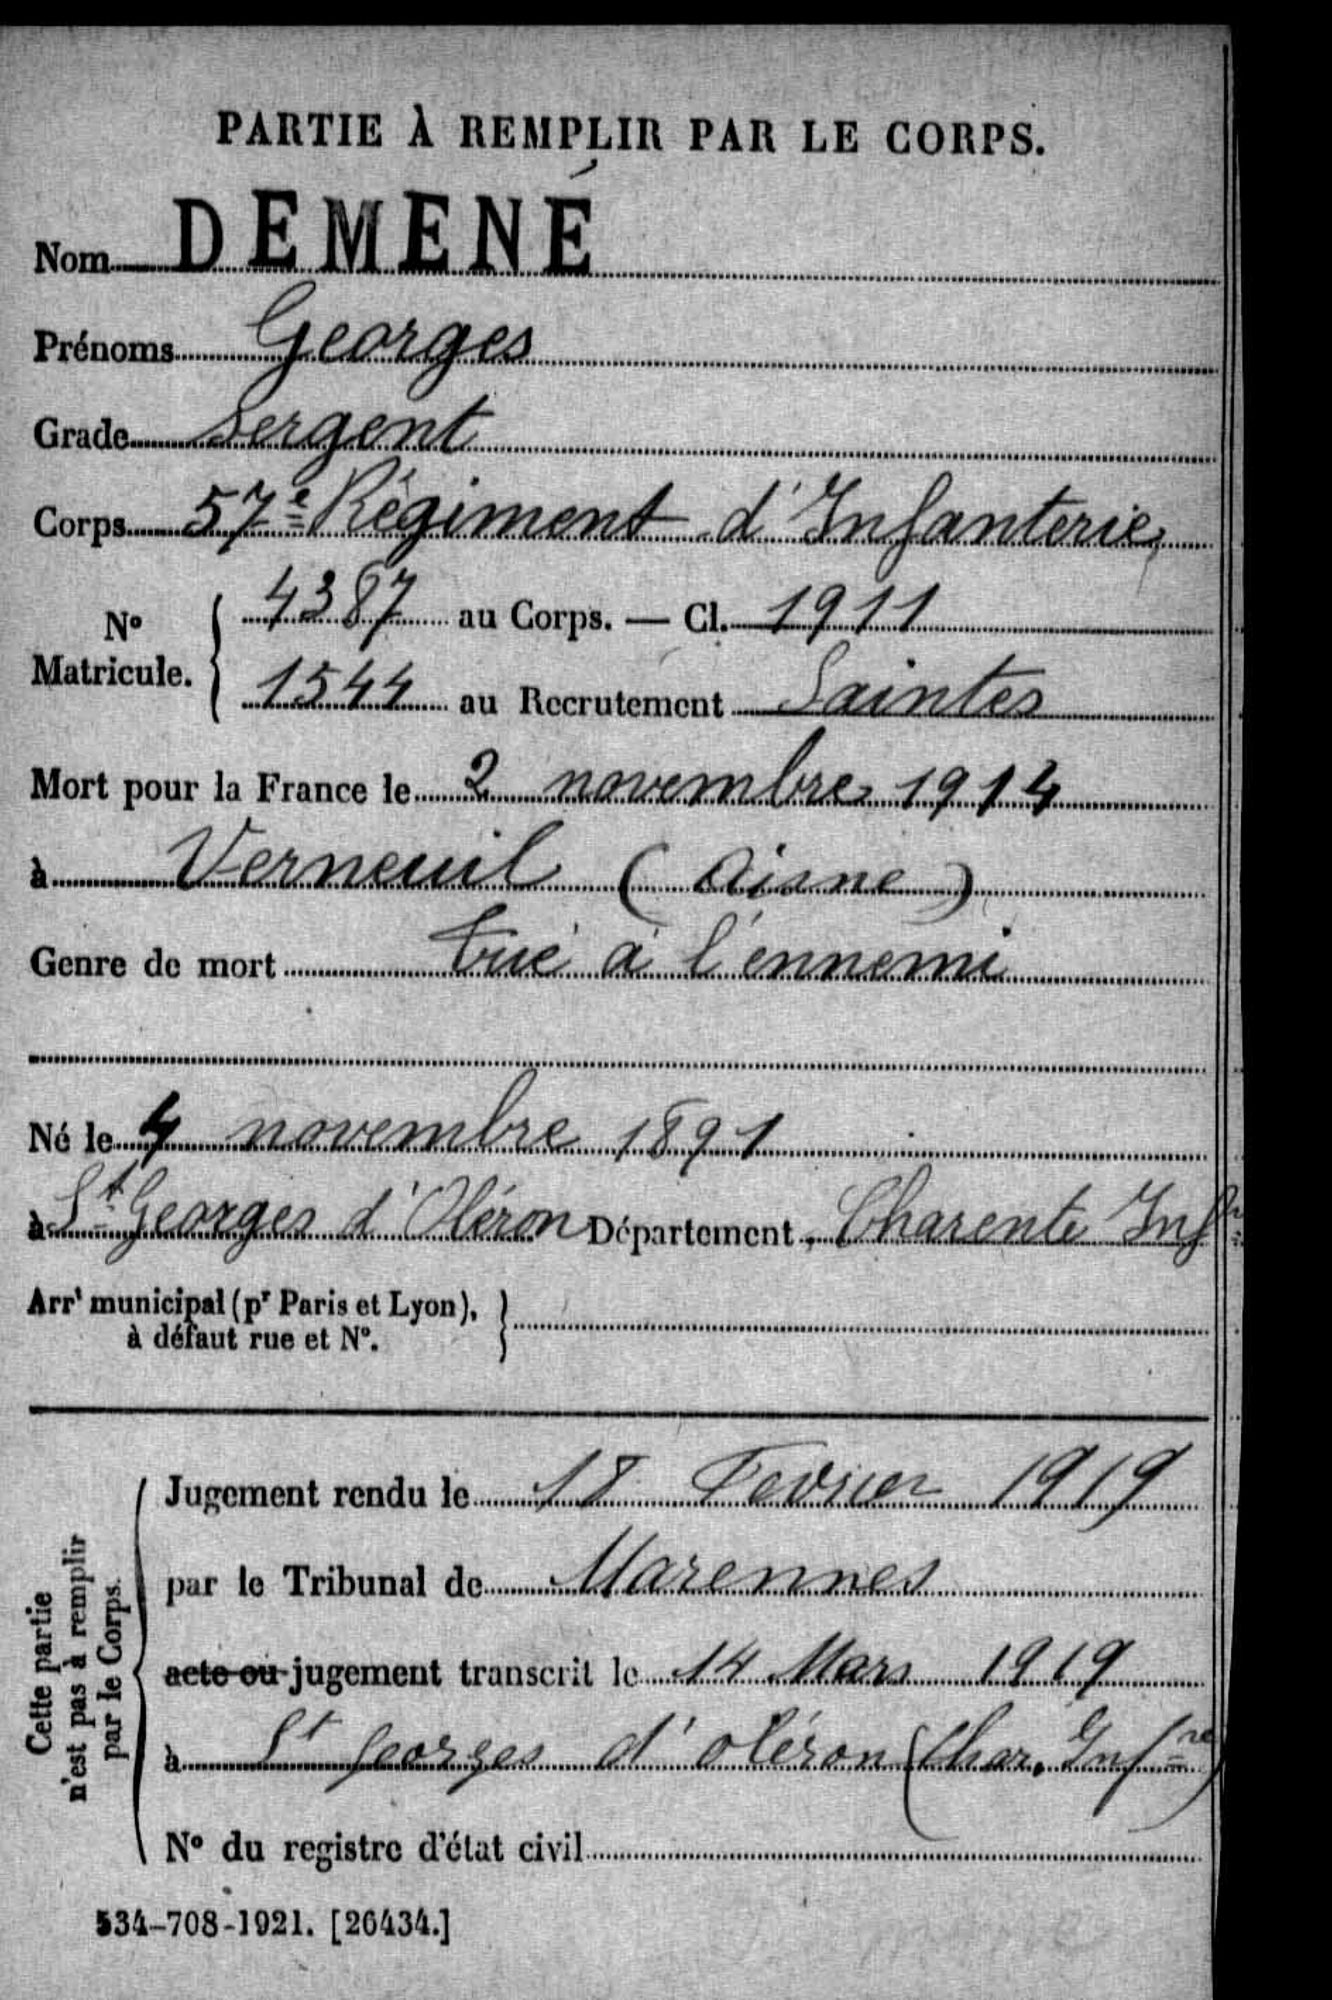 PARTIE À REMPLIR PAR LE CORPS.
Nom DEMENÉ
Prénoms Georges
Grade Sergent
Corps 57e Régiment d'Infanterie
N° Matricule. { 4387 au Corps. — Cl. 1911
1544 au Recrutement Saintes
Mort pour la France le 2 novembre 1914
à Verneuil (Aisne)
Genre de mort tué à l'ennemi
Né le 4 novembre 1891
à St Georges d'Oléron Département Charente Infre
Arrt municipal (pr Paris et Lyon), }
à défaut rue et N°.
Cette partie
n'est pas à remplir
par le Corps.
Jugement rendu le 18 Fevrier 1919
par le Tribunal de Marennes
acte ou jugement transcrit le 14 Mars 1919
à St Georges d'oléron (Char. Infre)
N° du registre d'état civil
534-708-1921. [26434.]